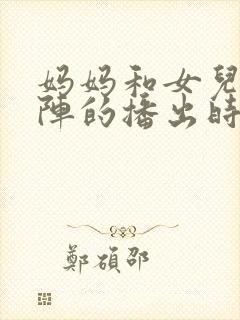 妈妈和女兒
陣的播出時
鄭碩邵